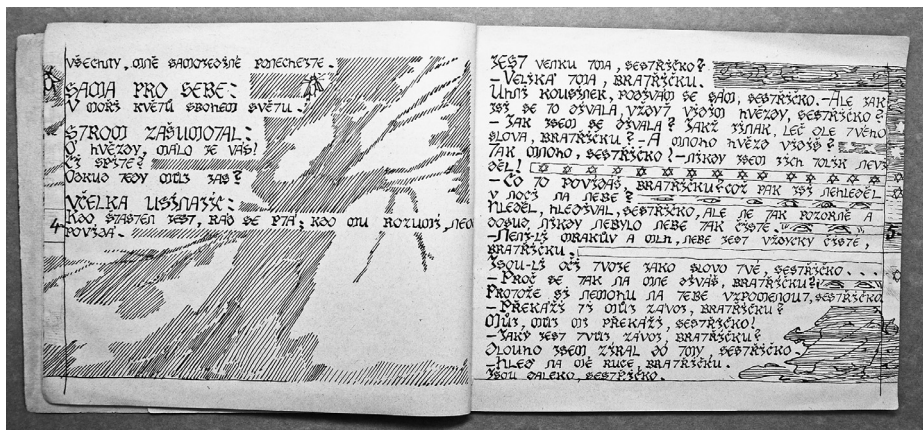 VŠECHNY, MNĚ SAMOJEDINÉ PONECHEJTE.
SAMA PRO SEBE:
V MOŘI KVĚTŮ SBOHEM SVĚTU.
STROM ZAŠUMOTAL:
Ó HVĚZDY, MÁLO JE VÁS!
ČI SPÍTE?
ODKUD TEDY MŮJ JAS?
VČELKA USÍNAJÍC:
KDO ŠŤASTEN JEST, RÁD SE PTÁ; KDO MU ROZUMÍ, NEO
POVÍDÁ.
4
JEST VENKU TMA, SESTŘIČKO?
- VELIKÁ TMA, BRATŘÍČKU.
UHNI KOUSÍNEK, PODÍVÁM SE SÁM, SESTŘIČKO. - ALE JAK
JSI SE TO DÍVALA, VŽDYŤ VIDÍM HVĚZDY, SESTŘIČKO?
- JAK JSEM SE DÍVALA? JAKŽ JINAK, LEČ DLE TVÉHO
SLOVA, BRATŘÍČKU? - A MNOHO HVĚZD VIDÍŠ?
TAK MNOHO, SESTŘIČKO! - NIKDY JSEM JICH TOLIK NEVI
DĚL!
- CO TO POVÍDÁŠ, BRATŘÍČKU? COŽ PAK JSI NEHLEDĚL
V NOCI NA NEBE?
HLEDĚL, HLEDÍVAL, SESTŘIČKO, ALE NE TAK POZORNĚ A
DOSUD NIKDY NEBYLO NEBE TAK ČISTÉ.
- NENÍ-LI MRAKŮV A MLH, NEBE JEST VŽDYCKY ČISTÉ,
BRATŘÍČKU.
5
JSOU-LI OČI TVOJE JAKO SLOVO TVÉ, SESTŘIČKO...
- PROČ SE TAK NA MNE DÍVÁŠ, BRATŘÍČKU?
PROTOŽE SI NEMOHU NA TEBE VZPOMENOUT, SESTŘIČKO
- PŘEKÁŽÍ TI MŮJ ZÁVOJ, BRATŘÍČKU?
MŮJ, MŮJ MI PŘEKÁŽÍ, SESTŘIČKO!
- JAKÝ JEST TVŮJ ZÁVOJ, BRATŘÍČKU?
DLOUHO JSEM ZÍRAL DO TMY, SESTŘIČKO.
- HLEĎ NA MÉ RUCE, BRATŘÍČKU.
JSOU DALEKO, SESTŘIČKO.